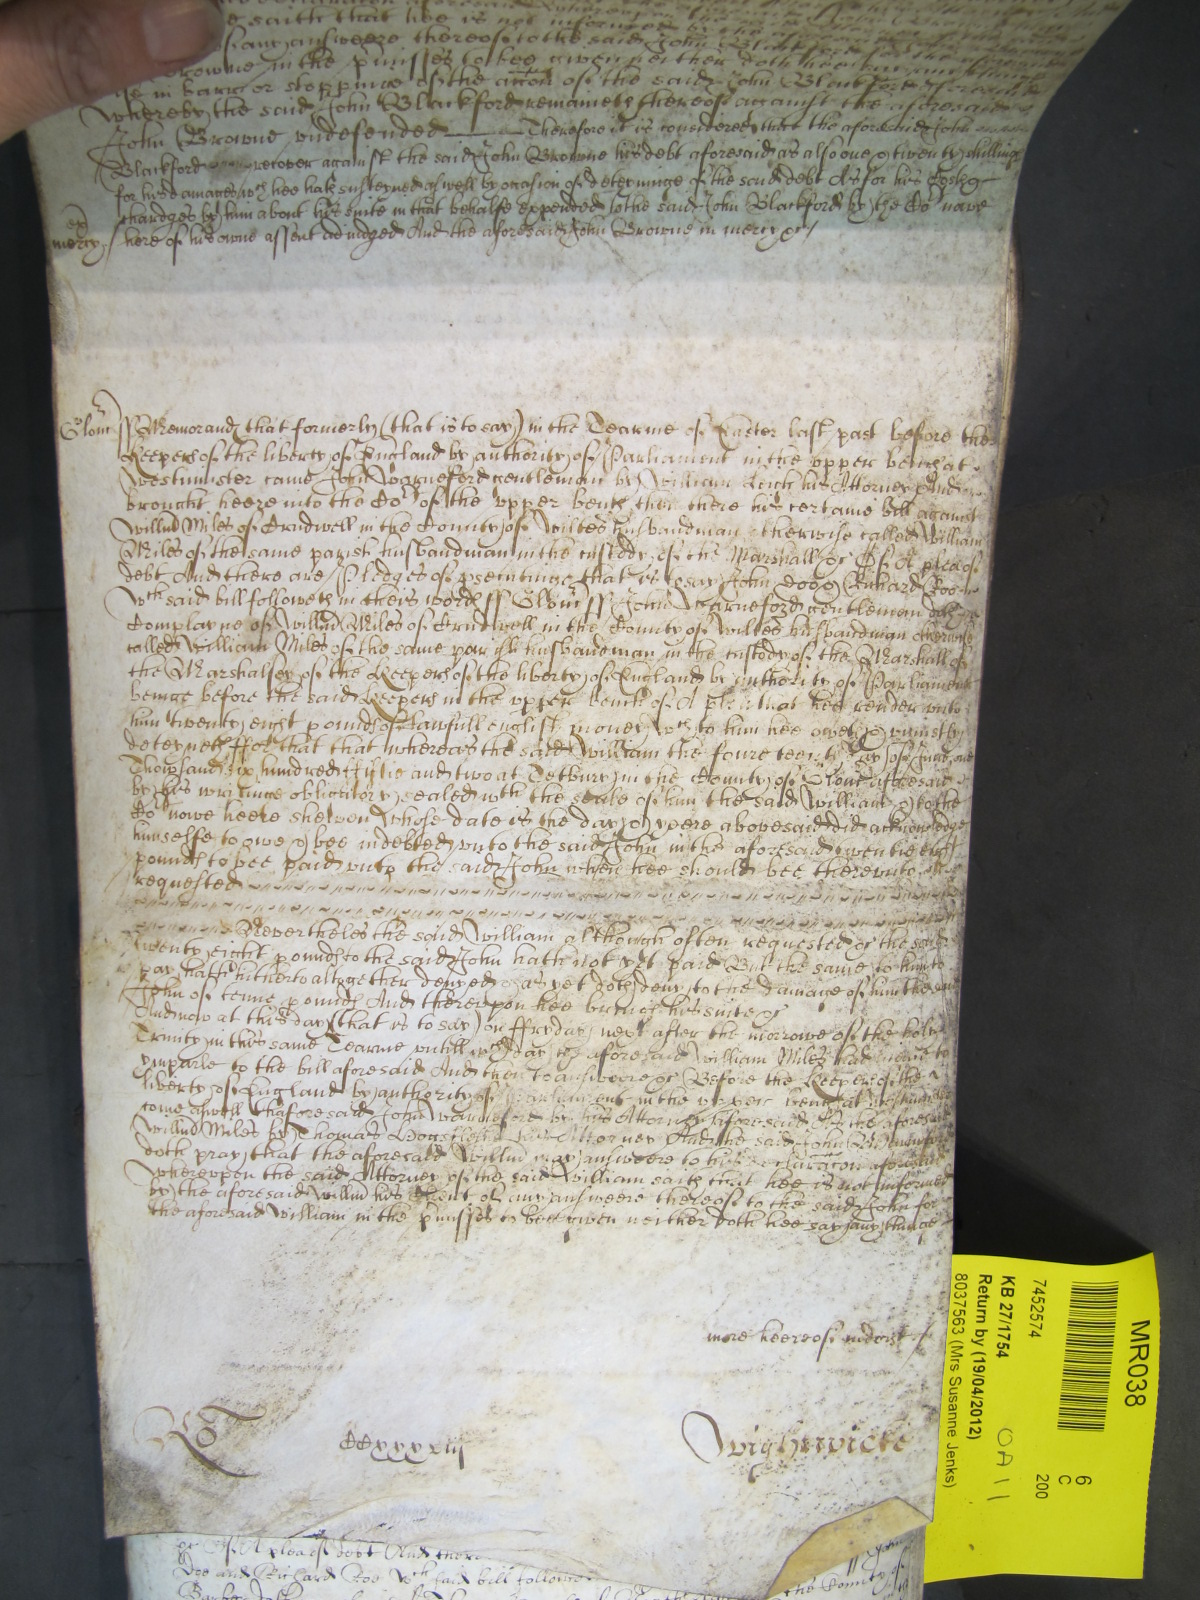 saith that hee is not informed
any answeere thereof to the said John Blackford
Browne in the p'misses to bee given neither doth hee
in barr or stoppinge of the accon of the said John Blackford
whereby the said John Blackford remaineth thereof against the aforesaid
John Browne undefended Therefore it is considered that the aforesaid John
Blackford recover against the said John Browne his debt aforesaid as also one & twenty shillings
for his damages wch hee hath susteyned aswell by occasion of deteyninge of the said debt As for his Costs &
chardges by him about his suite in that behalfe expended to the said John Blackford by the Co nowe
mercy / heere of his owne assent adiudged And the aforesaid John Browne in mercy &c /
Glouc ss Memorand that formerly (that is to say) in the Tearme of Easter last past before the
Keepers of the liberty of England by authority of Parliament in the upper bench at
Westminster came John Warneford gentleman by William Leigh his Attorney And
brought heere into the Co of the upper bench then there his certame bill against
Willm Miles of Crudwell in the County of Wiltes husbandman otherwise called William
Miles of the same parish husbandman in the custody of the Marshall &c Of A plea of
debt And there are pledges of psecutinge that is to say John Doe & Richard Roe
Wch said bill followeth in theis words ss Glouc ss John Warneford gentleman
Complayne of Willm Miles of Crudwell in the County of Wiltes husbandman otherwise
called William Miles of the same parish husbandman in the custody of the Marshall of
the Marshalsey of the Keepers of the liberty of England by authority of Parliament
beinge before the said Keepers in the upper bench of A plea that hee render unto
him twenty eight pounds of lawfull english money wch to him hee oweth & uniustly
deteyneth ffor that that whereas the said William the foureteenth day of June one
Thowsand six hundred ffiftie and two at Tetbury in the County of Glouc aforesaid
by his writinge obligatory sealed wth the seale of him the said William & to the
Co nowe heere shewen whose date is the day & yeere abovesaid did acknowledge
himselfe to owe & bee indebted unto the said John in the aforesaid twentie eight
pounds to bee paid unto the said John when hee should bee thereunto
requested
Neverthelesse the said William although often requested &c the said
twenty eight pounds to the said John hath not yet paid But the same to him to
pay hath hitherto altogether denyed & as yet doth deny to the damage of him the said
John of tenne pounds And thereupon hee bringeth his suite &c
And now at this day (that is to say) on ffryday next after the morrowe of the holy
Trinity in this same Tearme untill wch day the aforesaid William Miles had leave to
imparle to the bill aforesaid And then to answeere &c Before the Keepers of the
liberty of England by authority of Parliament in the upper bench at Westminster
come aswell thaforesaid John Warneford by his Attorney aforesaid As the aforesaid
Willm Miles by Thomas his Attorney And the said John Warneford
doth pray that the aforesaid Willm may answeere to his declaracon aforesaid
Whereuppon the said Attorney of the said William saith that hee is not informed
by the aforesaid Willm his Client of any answeere thereof to the said John for
the aforesaid William in the p'misses to bee given neither doth hee say any thinge
more heereof indors /
Ro CCxxxxiij Wightwicke
&c Of A plea of debt And there
Doe and Richard Roe Wch said bill followe
John
the County of
MR038
6
C
200
7452574
KB 27/1754
OA 11
Return by (19/04/2012)
8037563 (Mrs Susanne Jenks)